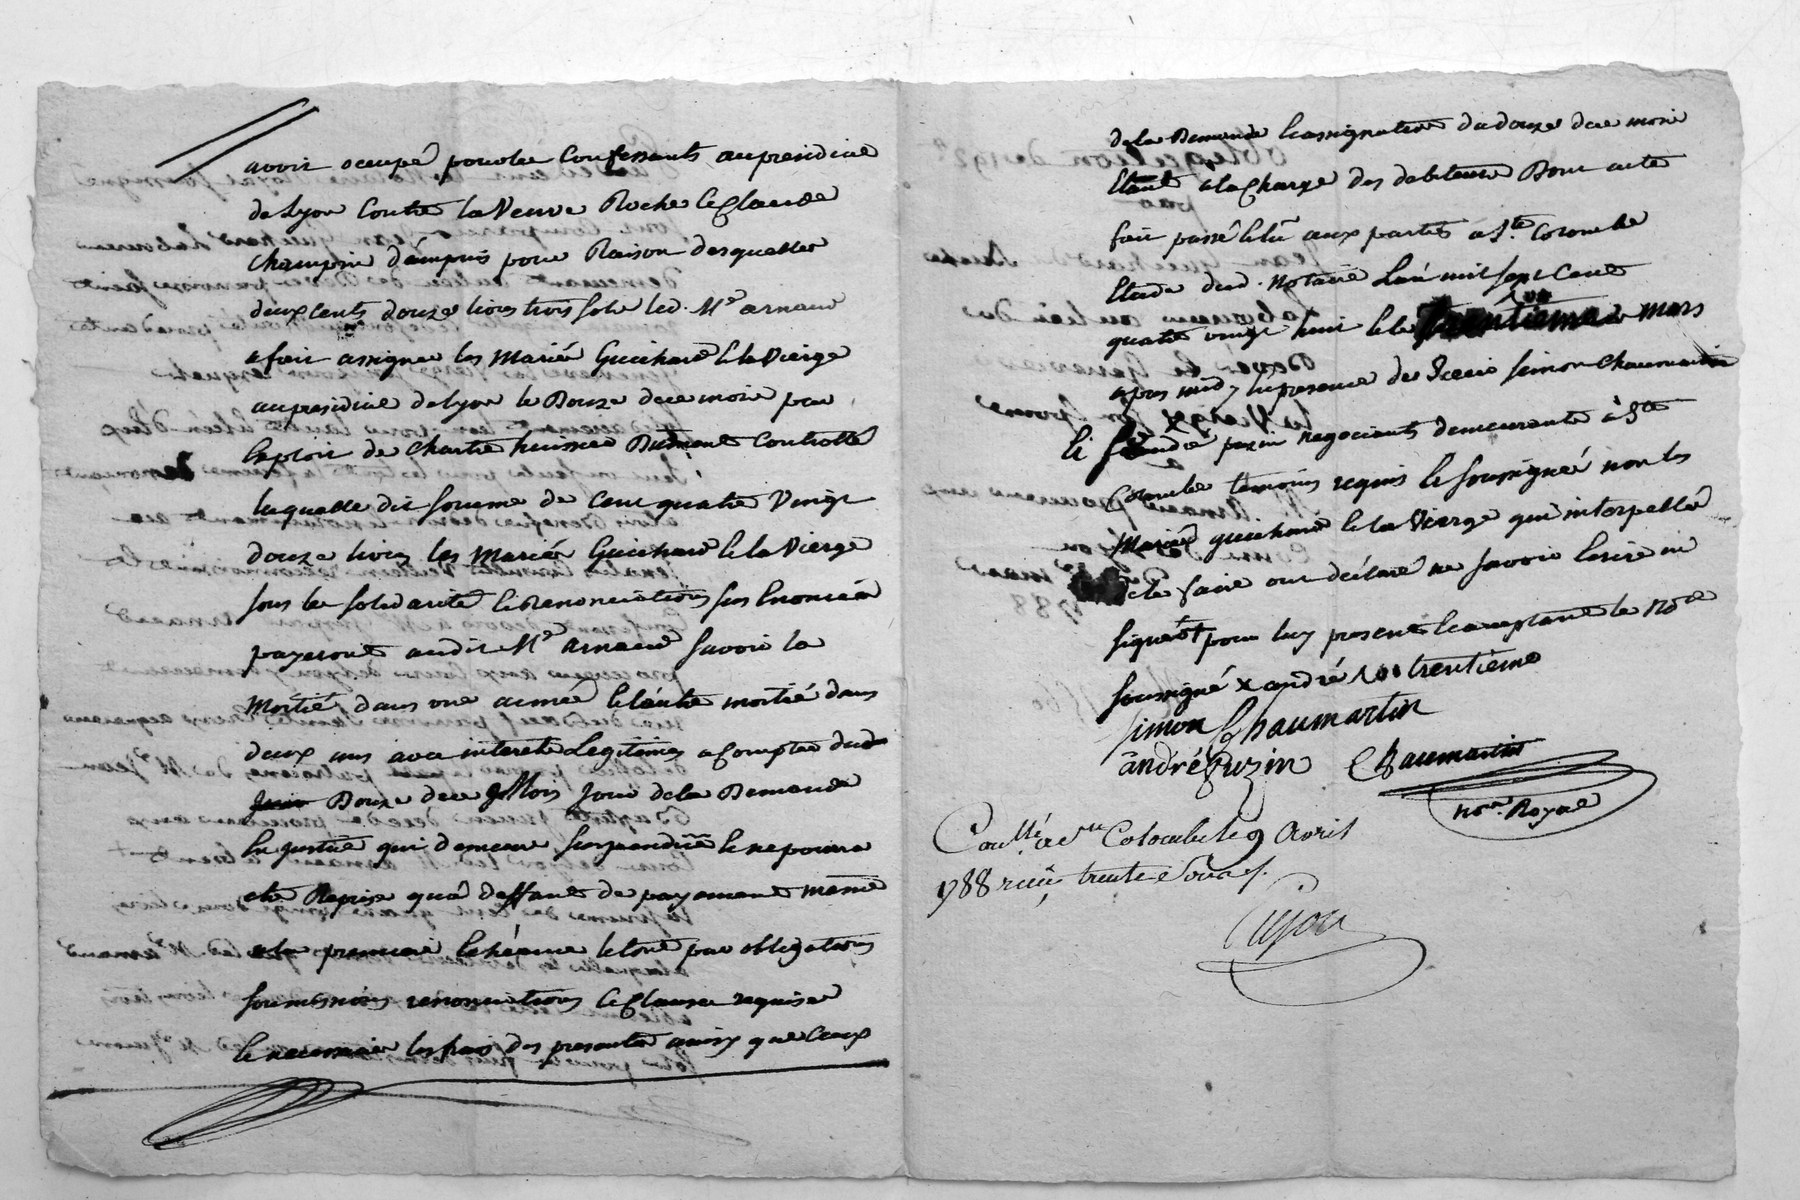 avoir occupé pour les Confessants au presidial
de Lyon Contre la Veuve Roche & Claude
Champin d'ampuis pour Raison desquelles
deux Cents douze livres trois sols led. Me arnaud
a fait assigner les Mariés Guichard & la Vierge
au presidial de Lyon le Douze de ce mois par
Exploit de Chartre huissier Duement Controllé
laquelle dit somme de Cent quatre Vingt
douze livres les Mariés Guichard & la Vierge
sous les solidarité & renonciations sus Enoncées
payeront audit Me arnaud savoir la
Moitié dans une année & l'autre moitié dans
deux ans avec interets Legitimes a Compter dud.
Douze de ce Mois jour de la Demande
En justice qui demeure suspendüe & ne pourra
etre Reprise qu'a deffaut de payement même
de la premiere Echéance & tout par obligations
soumissions renonciations & Clauses requises
& necessaires les frais des presentes ainsy que Ceux
de la Demande & assignation du douze de ce mois
Etant a la Charge des debiteurs Dont acte
fait passé & lû aux parties a Ste Colombe
Etude dud. Notaire L'an mil sept Cent
quatre vingt huit & le trentieme mars
apres midy En presence de Sieurs Simon Chaumartin
& André puzin negociants demeurants à Ste
Colombe temoins requis & soussignés non les
Mariés guichard & la Vierge qui interpellés
de le faire ont déclaré ne savoir Ecrire ni
signer pour luy present & acceptant le Nore
soussigné x andré trentieme
Simon Chaumartin
andré puzin Chaumartin
nore. Royal
Conllé a Ste Colombe le 9 Avril
1788 reçu trente sous